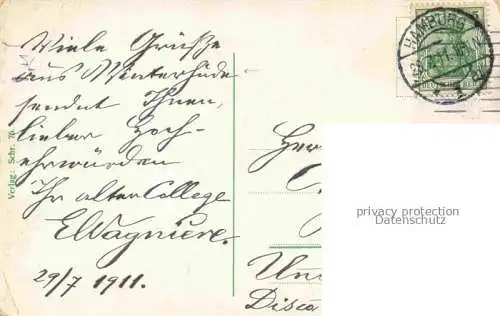 Viele Grüsse
aus Winterhude
sendet Ihnen,
lieber Hoch-
ehrwürden
Ihr alter College
E. Wagniere.
29/7 1911.
Verlag: Schr. 76
HAMBURG
Her
privacy protection
Datenschutz
Disca